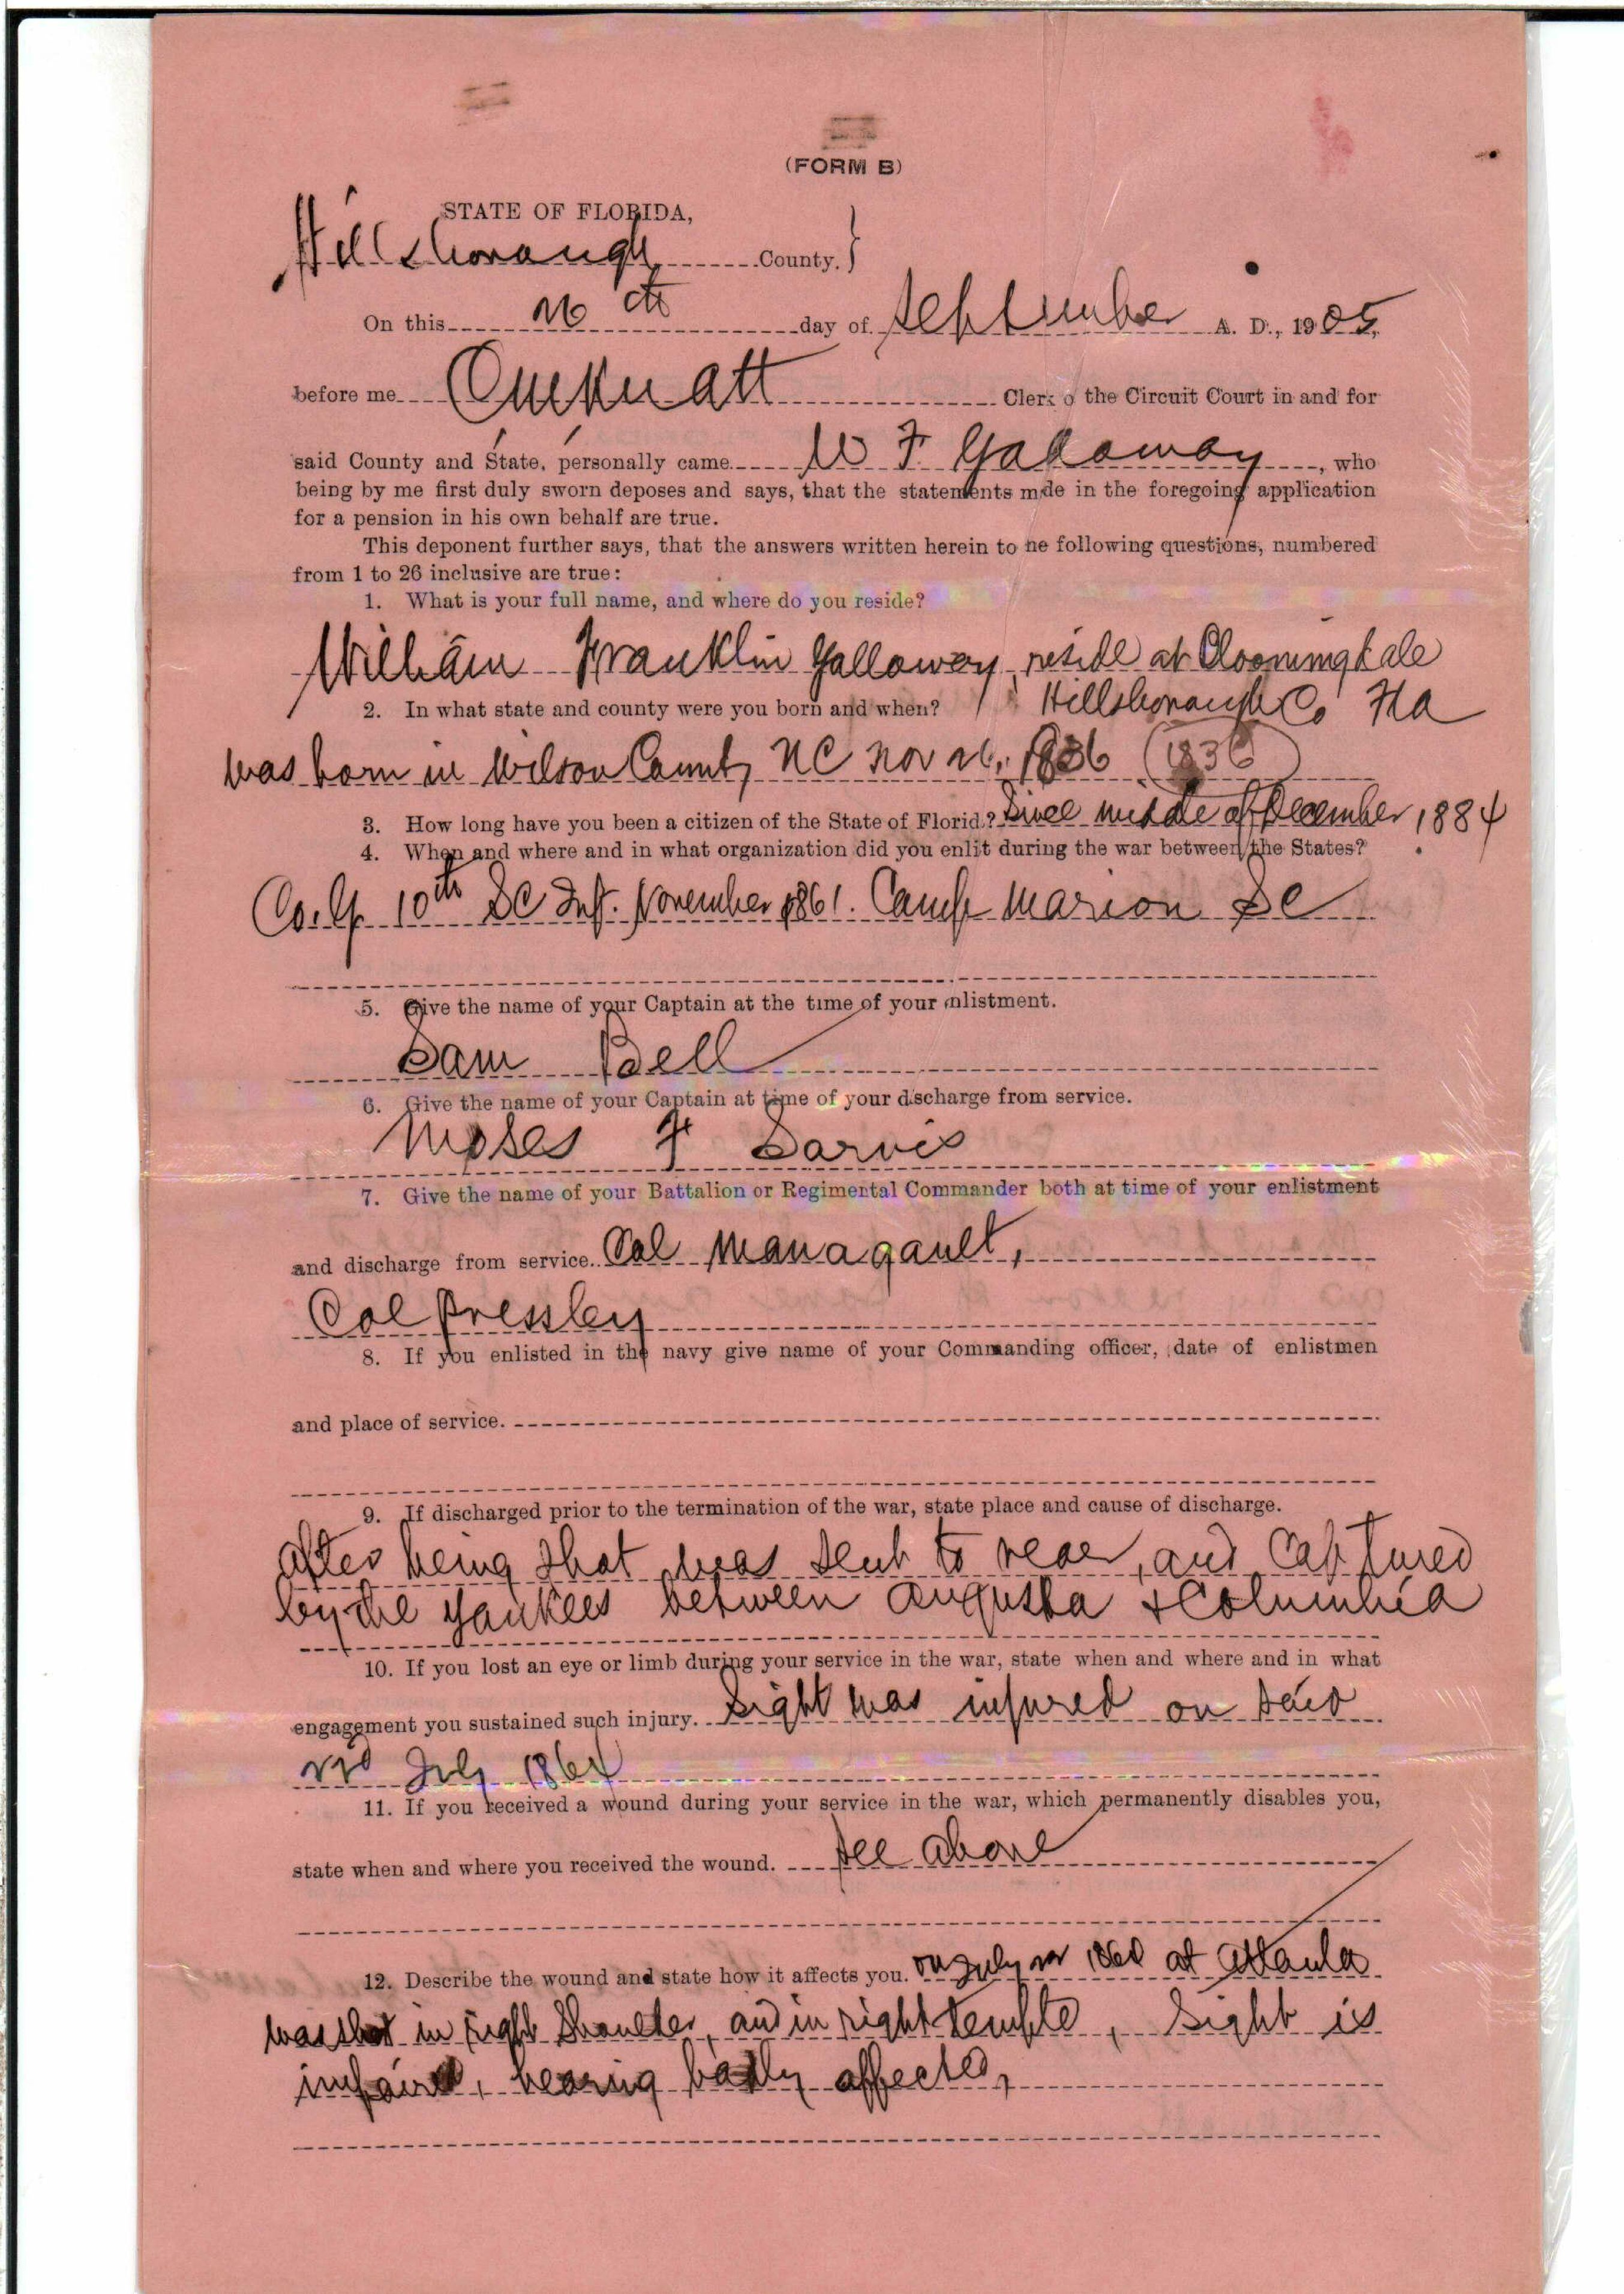 (FORM B)
STATE OF FLORIDA,
Hillsborough County.
On this 26th day of September A. D., 1905,
before me Clerk o the Circuit Court in and for
said County and State, personally came W F Galloway, who
being by me first duly sworn deposes and says, that the statements mde in the foregoing application
for a pension in his own behalf are true.
This deponent further says, that the answers written herein to he following questions, numbered
from 1 to 26 inclusive are true:
1. What is your full name, and where do you reside?
William Franklin Galloway, reside at Bloomingdale
Hillsborough Co Fla
2. In what state and county were you born and when?
was born in Wilson County NC Nov 26, 1836 (1836)
3. How long have you been a citizen of the State of Florid? Since middle of December, 1884
4. When and where and in what organization did you enlit during the war between the States?
Co. G 10th SC Inft. November 1861. Camp Marion SC
5. Give the name of your Captain at the time of your nlistment.
Sam Bell
6. Give the name of your Captain at time of your discharge from service.
Moses F Sarvis
7. Give the name of your Battalion or Regimental Commander both at time of your enlistment
and discharge from service. Col Managault,
Col Pressley
8. If you enlisted in the navy give name of your Commanding officer, date of enlistmen
and place of service.
9. If discharged prior to the termination of the war, state place and cause of discharge.
After being shot was sent to rear, and captured
by the Yankees between Augusta & Columbia
10. If you lost an eye or limb during your service in the war, state when and where and in what
engagement you sustained such injury. Sight was injured on said
22d July 1864
11. If you received a wound during your service in the war, which permanently disables you,
state when and where you received the wound. See above
12. Describe the wound and state how it affects you. on July 22 1864 at Atlanta
was shot in right Shoulder, and in right temple, Sight is
impaired, hearing badly affected,